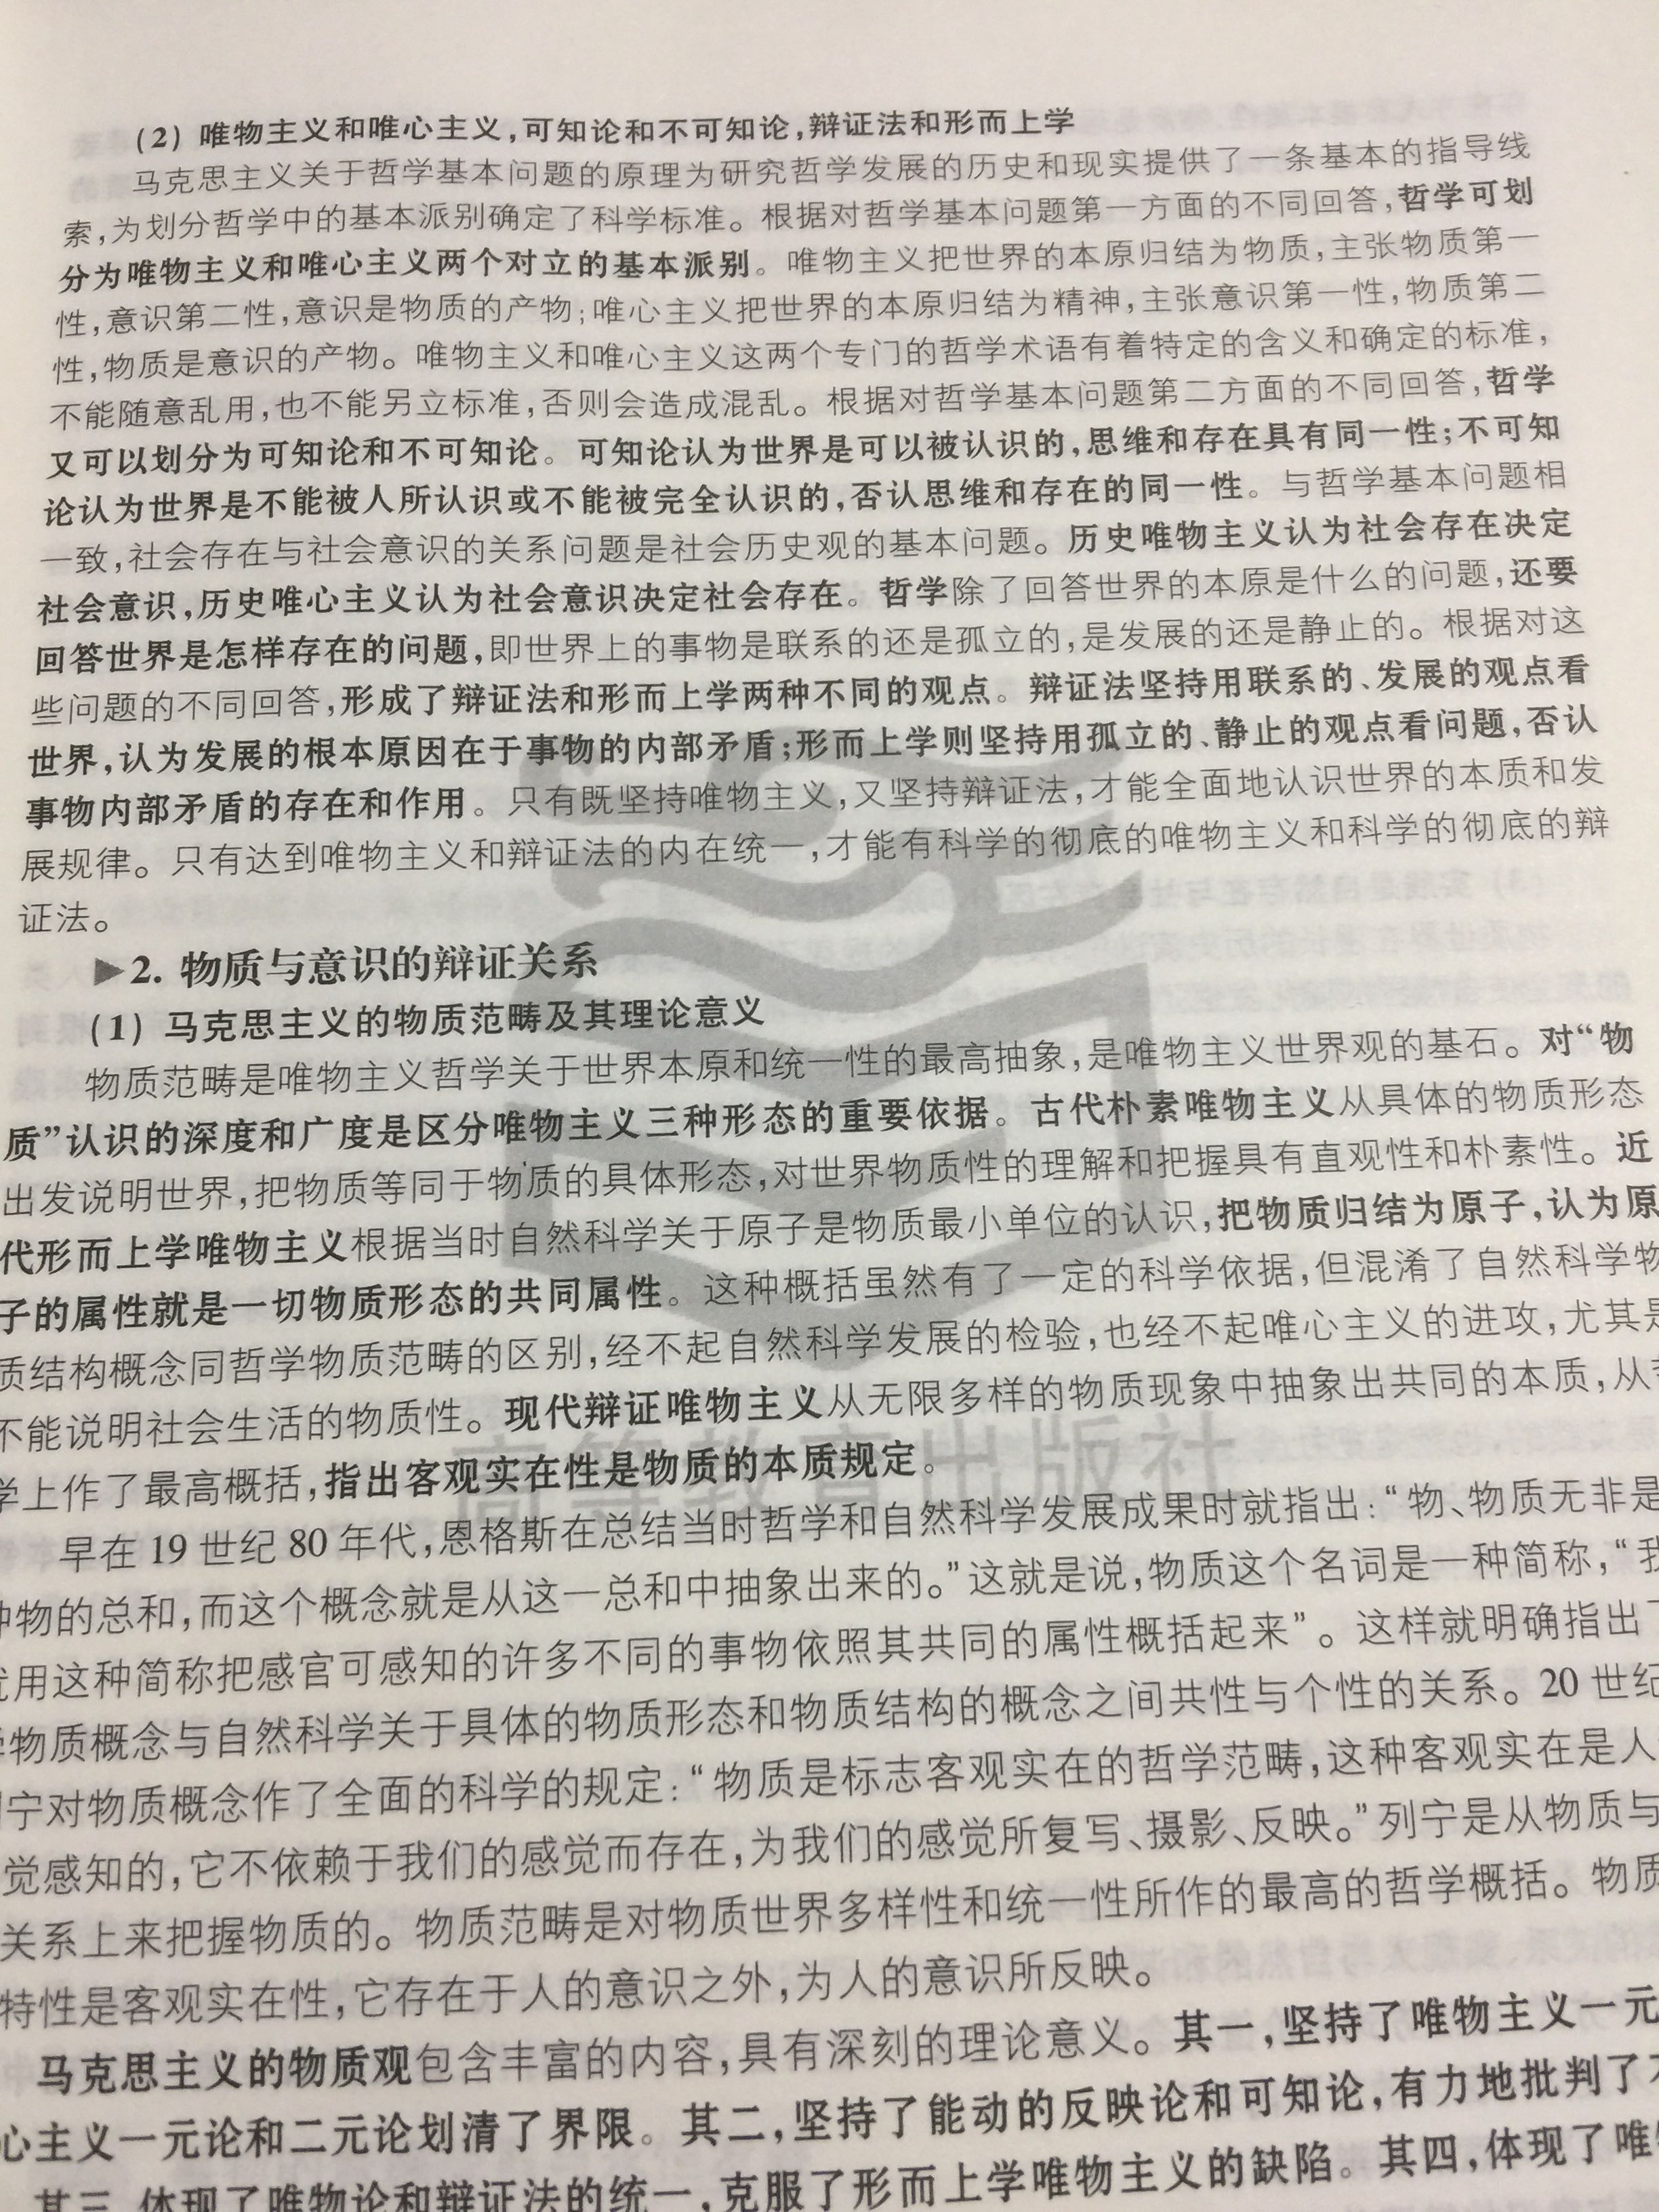 (2) 唯物主义和唯心主义,可知论和不可知论,辩证法和形而上学
马克思主义关于哲学基本问题的原理为研究哲学发展的历史和现实提供了一条基本的指导线
索,为划分哲学中的基本派别确定了科学标准。根据对哲学基本问题第一方面的不同回答,哲学可划
分为唯物主义和唯心主义两个对立的基本派别。唯物主义把世界的本原归结为物质,主张物质第一
性,意识第二性,意识是物质的产物;唯心主义把世界的本原归结为精神,主张意识第一性,物质第二
性,物质是意识的产物。唯物主义和唯心主义这两个专门的哲学术语有着特定的含义和确定的标准,
不能随意乱用,也不能另立标准,否则会造成混乱。根据对哲学基本问题第二方面的不同回答,哲学
又可以划分为可知论和不可知论。可知论认为世界是可以被认识的,思维和存在具有同一性;不可知
论认为世界是不能被人所认识或不能被完全认识的,否认思维和存在的同一性。与哲学基本问题相
一致,社会存在与社会意识的关系问题是社会历史观的基本问题。历史唯物主义认为社会存在决定
社会意识,历史唯心主义认为社会意识决定社会存在。哲学除了回答世界的本原是什么的问题,还要
回答世界是怎样存在的问题,即世界上的事物是联系的还是孤立的,是发展的还是静止的。根据对这
些问题的不同回答,形成了辩证法和形而上学两种不同的观点。辩证法坚持用联系的、发展的观点看
世界,认为发展的根本原因在于事物的内部矛盾;形而上学则坚持用孤立的、静止的观点看问题,否认
事物内部矛盾的存在和作用。只有既坚持唯物主义,又坚持辩证法,才能全面地认识世界的本质和发
展规律。只有达到唯物主义和辩证法的内在统一,才能有科学的彻底的唯物主义和科学的彻底的辩
证法。
▶2. 物质与意识的辩证关系
(1) 马克思主义的物质范畴及其理论意义
物质范畴是唯物主义哲学关于世界本原和统一性的最高抽象,是唯物主义世界观的基石。对“物
质”认识的深度和广度是区分唯物主义三种形态的重要依据。古代朴素唯物主义从具体的物质形态
出发说明世界,把物质等同于物质的具体形态,对世界物质性的理解和把握具有直观性和朴素性。近
代形而上学唯物主义根据当时自然科学关于原子是物质最小单位的认识,把物质归结为原子,认为原
子的属性就是一切物质形态的共同属性。这种概括虽然有了一定的科学依据,但混淆了自然科学物
质结构概念同哲学物质范畴的区别,经不起自然科学发展的检验,也经不起唯心主义的进攻,尤其是
不能说明社会生活的物质性。现代辩证唯物主义从无限多样的物质现象中抽象出共同的本质,从
学上作了最高概括,指出客观实在性是物质的本质规定。
高等教育出版社
早在19世纪80年代,恩格斯在总结当时哲学和自然科学发展成果时就指出:“物、物质无非是
种物的总和,而这个概念就是从这一总和中抽象出来的。”这就是说,物质这个名词是一种简称,“我
就用这种简称把感官可感知的许多不同的事物依照其共同的属性概括起来”。这样就明确指出了
物质概念与自然科学关于具体的物质形态和物质结构的概念之间共性与个性的关系。20世纪
宁对物质概念作了全面的科学的规定:“物质是标志客观实在的哲学范畴,这种客观实在是人
觉感知的,它不依赖于我们的感觉而存在,为我们的感觉所复写、摄影、反映。”列宁是从物质与
关系上来把握物质的。物质范畴是对物质世界多样性和统一性所作的最高的哲学概括。物质
特性是客观实在性,它存在于人的意识之外,为人的意识所反映。
马克思主义的物质观包含丰富的内容,具有深刻的理论意义。其一,坚持了唯物主义一元
心主义一元论和二元论划清了界限。其二,坚持了能动的反映论和可知论,有力地批判了不
其三,体现了唯物论和辩证法的统一,克服了形而上学唯物主义的缺陷。其四,体现了唯物